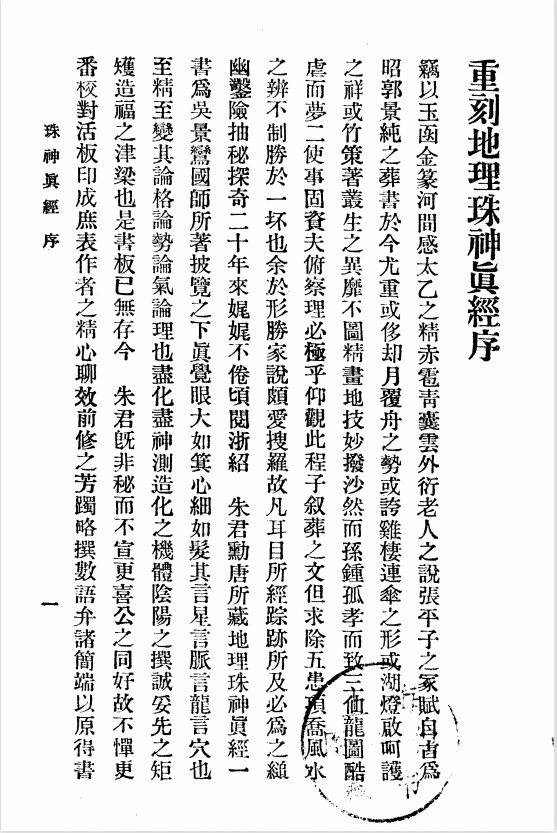 重刻地理珠神眞經序
竊以玉函金篆河間感太乙之精赤雹靑囊雲外衍老人之說張平子之冢賦自古爲
昭郭景純之葬書於今尤重或侈却月覆舟之勢或誇雞棲連傘之形或湖燈啟呵護
之祥或竹策著叢生之異靡不圖精畫地技妙撥沙然而孫鍾孤孝而致三仙龍圖酷
虐而夢二使事固資夫俯察理必極乎仰觀此程子叙葬之文但求除五患項喬風水
之辨不制勝於一坏也余於形勝家說頗愛搜羅故凡耳目所經踪跡所及必爲之縋
幽鑿險抽秘探奇二十年來娓娓不倦頃閱浙紹　朱君勳唐所藏地理珠神眞經一
書爲吳景鸞國師所著披覽之下眞覺眼大如箕心細如髮其言星言脈言龍言穴也
至精至變其論格論勢論氣論理也盡化盡神測造化之機體陰陽之撰誠妥先之矩
矱造福之津梁也是書板已無存今　朱君旣非秘而不宣更喜公之同好故不憚更
番校對活板印成庶表作者之精心聊效前修之芳躅略撰數語弁諸簡端以原得書
珠神眞經　序
一